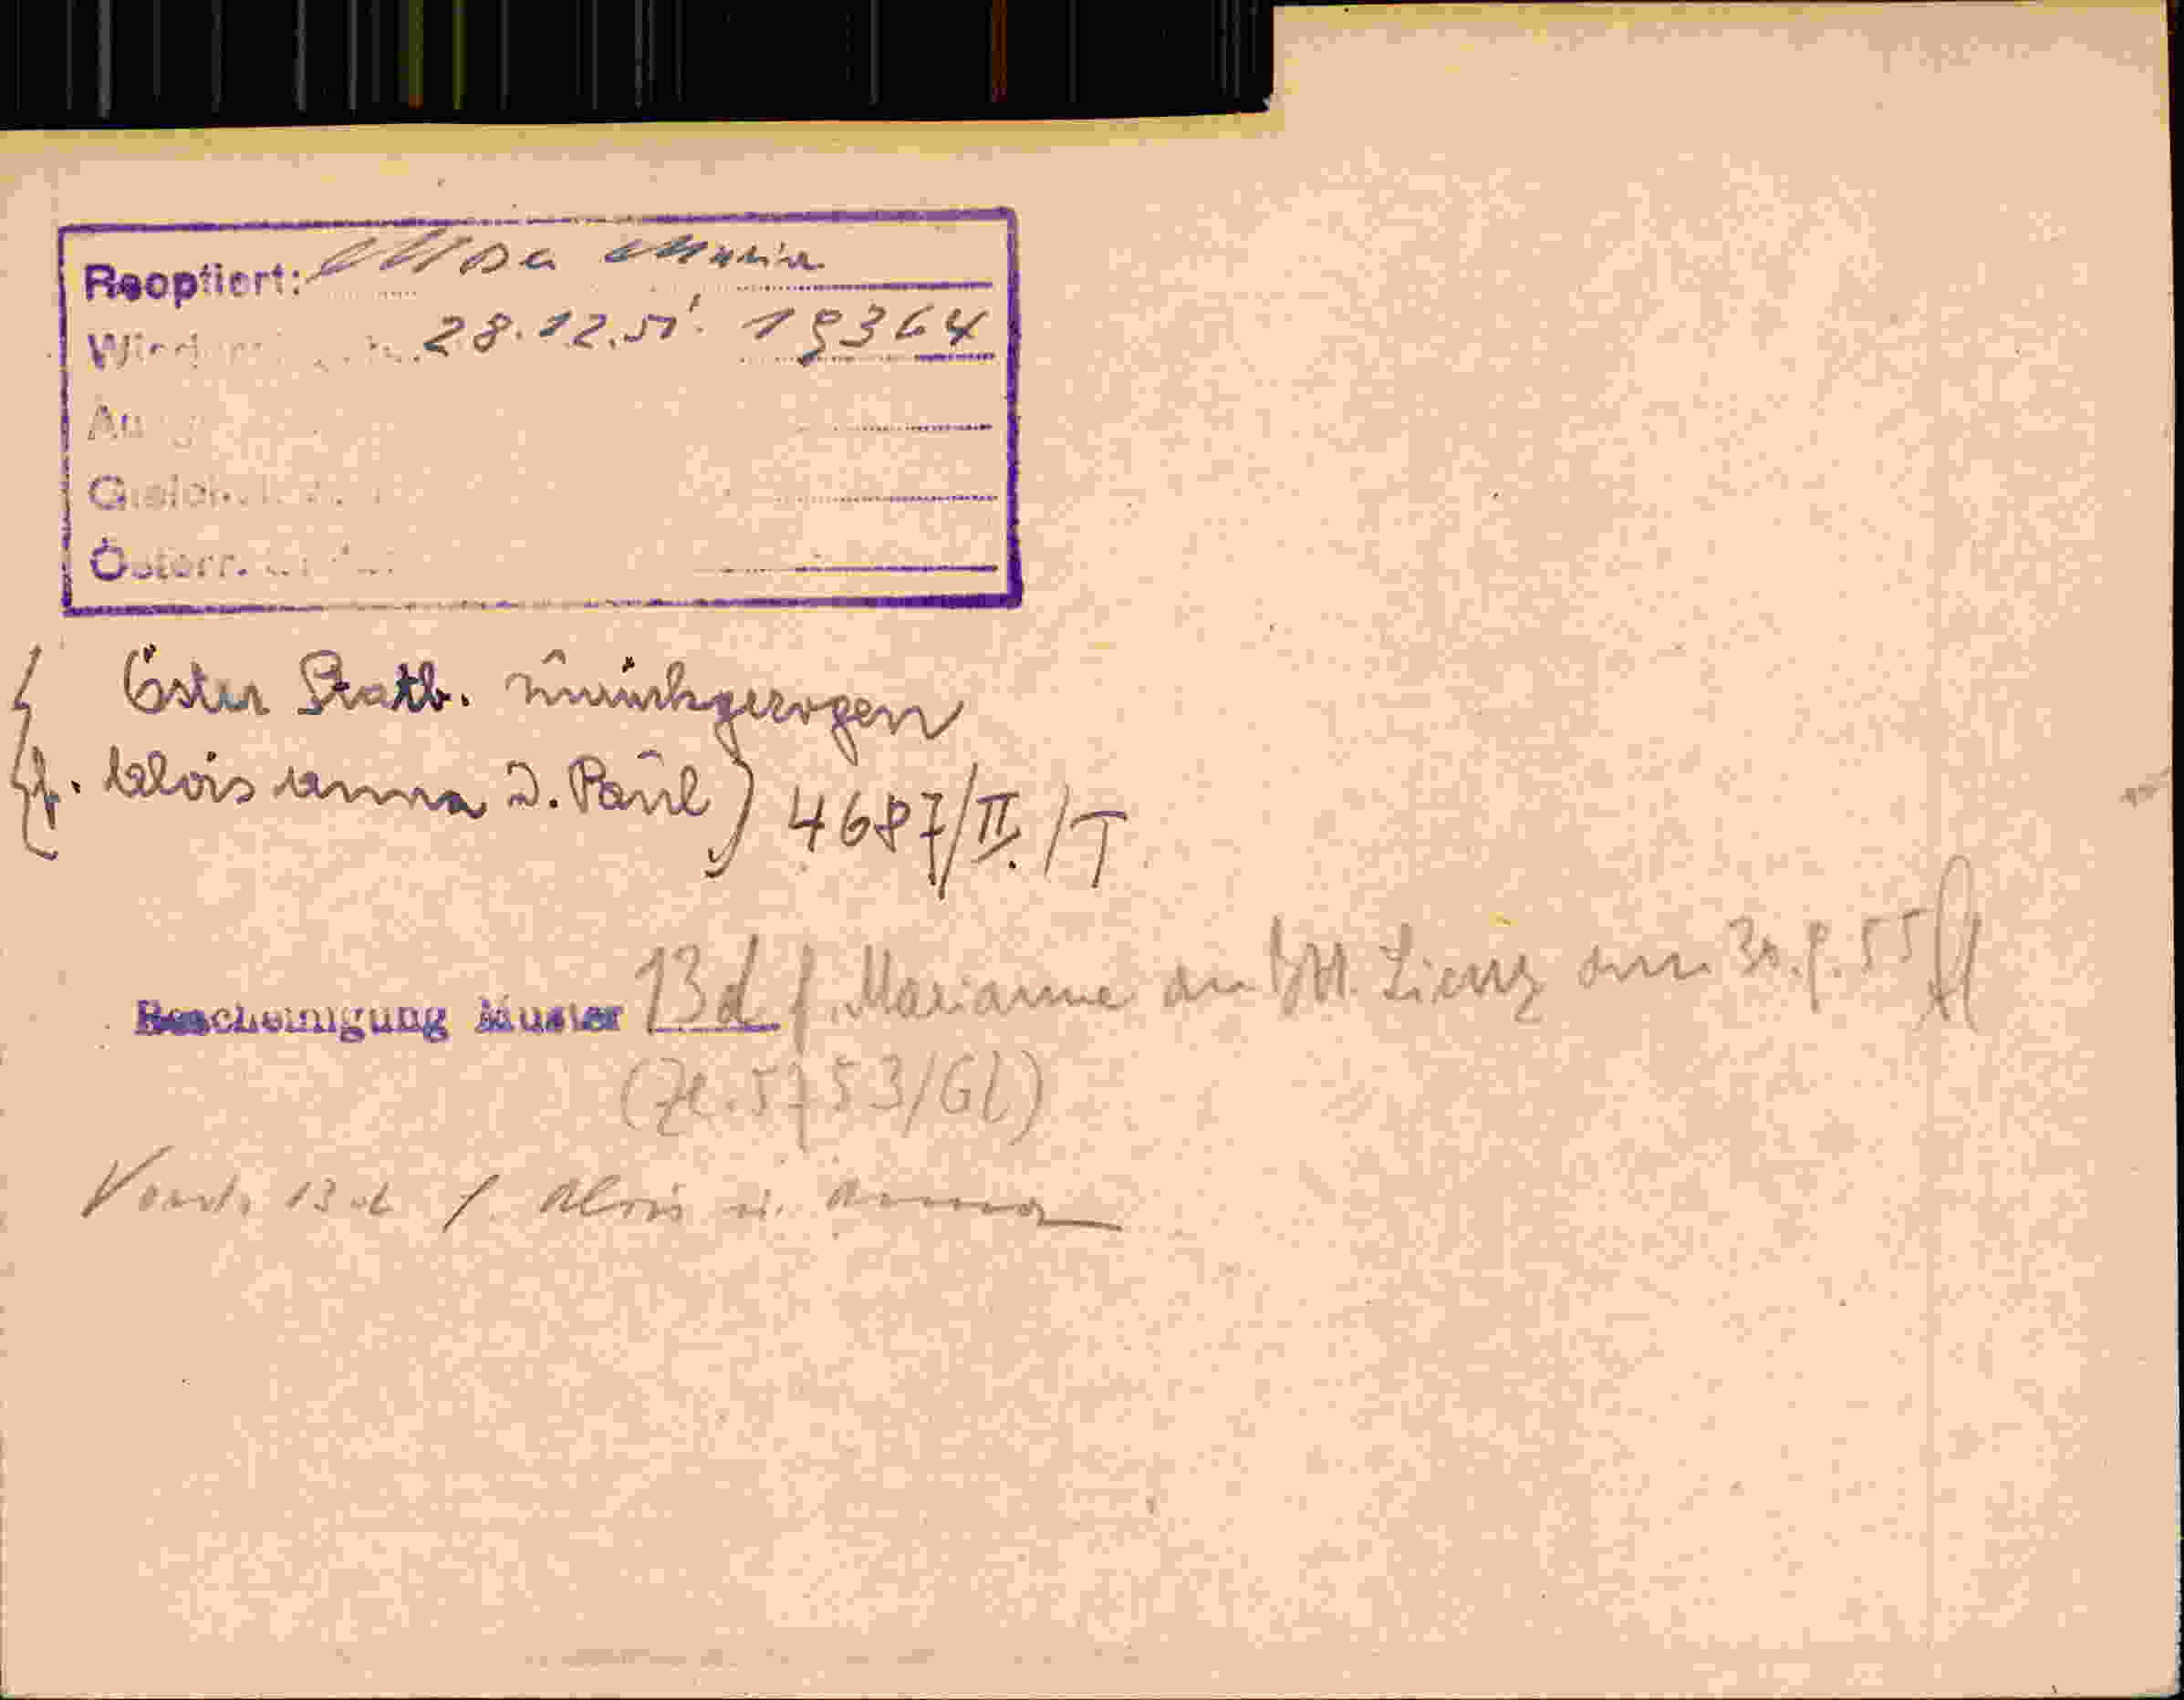 Reoptiert: Moser Maria
28.12.51. 19364
Österr.
Öster Statb. zurückgezogen
f. Alois Anna u. Paul 4687/II./T
Bescheinigung Muster 13d f. Marianne an BH. Lienz am 30.9.55
(Zl. 5753/Gl)
13d f. Alois u. Anna